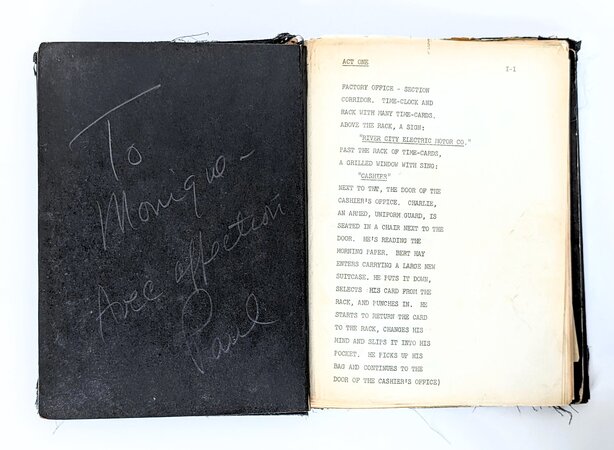 To
Monique -
Avec affection
Paul
ACT ONE
I-1
FACTORY OFFICE - SECTION
CORRIDOR. TIME-CLOCK AND
RACK WITH MANY TIME-CARDS.
ABOVE THE RACK, A SIGN:
"RIVER CITY ELECTRIC MOTOR CO."
PAST THE RACK OF TIME-CARDS,
A GRILLED WINDOW WITH SING:
"CASHIER"
NEXT TO THT, THE DOOR OF THE
CASHIER'S OFFICE. CHARLIE,
AN ARMED, UNIFORM GUARD, IS
SEATED IN A CHAIR NEXT TO THE
DOOR. HE'S READING THE
MORNING PAPER. BERT HAY
ENTERS CARRYING A LARGE NEW
SUITCASE. HE PUTS IT DOWN,
SELECTS HIS CARD FROM THE
RACK, AND PUNCHES IN. HE
STARTS TO RETURN THE CARD
TO THE RACK, CHANGES HIS
MIND AND SLIPS IT INTO HIS
POCKET. HE PICKS UP HIS
BAG AND CONTINUES TO THE
DOOR OF THE CASHIER'S OFFICE)